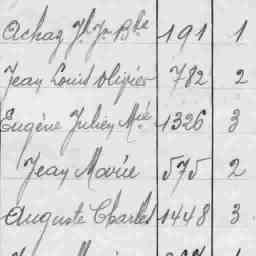 Achaz Jh Jn Bte 191 1
Jean Louis Olivier 782 2
Eugène Julien Mie 1326 3
Jean Marie 575 2
Auguste Charles 1448 3